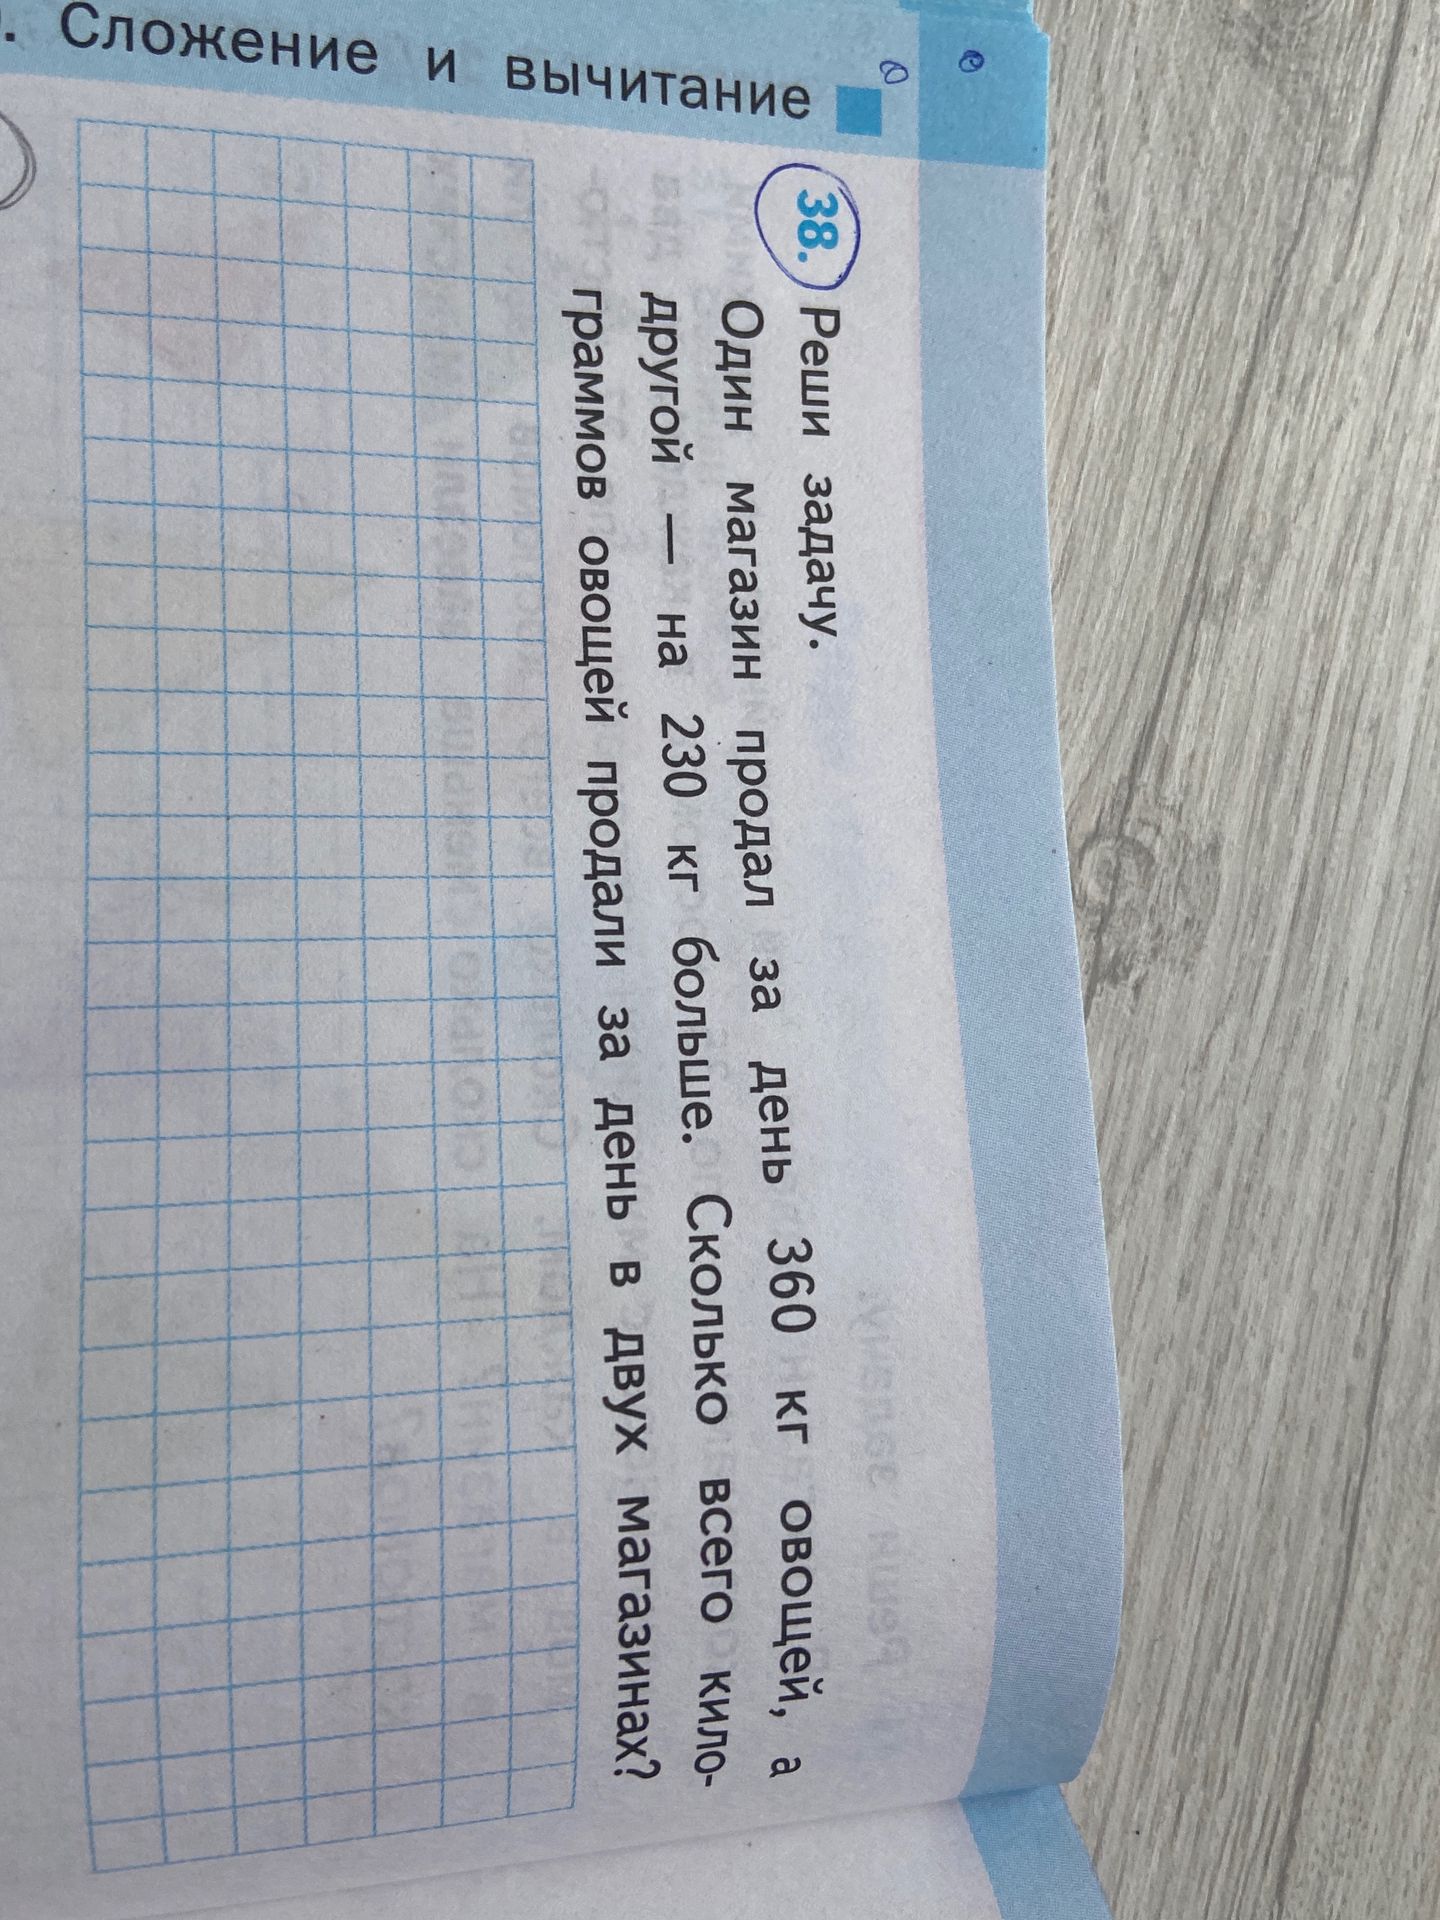 Сложение и вычитание
38. Реши задачу.
Один магазин продал за день 360 кг овощей, а
другой — на 230 кг больше. Сколько всего кило-
граммов овощей продали за день в двух магазинах?